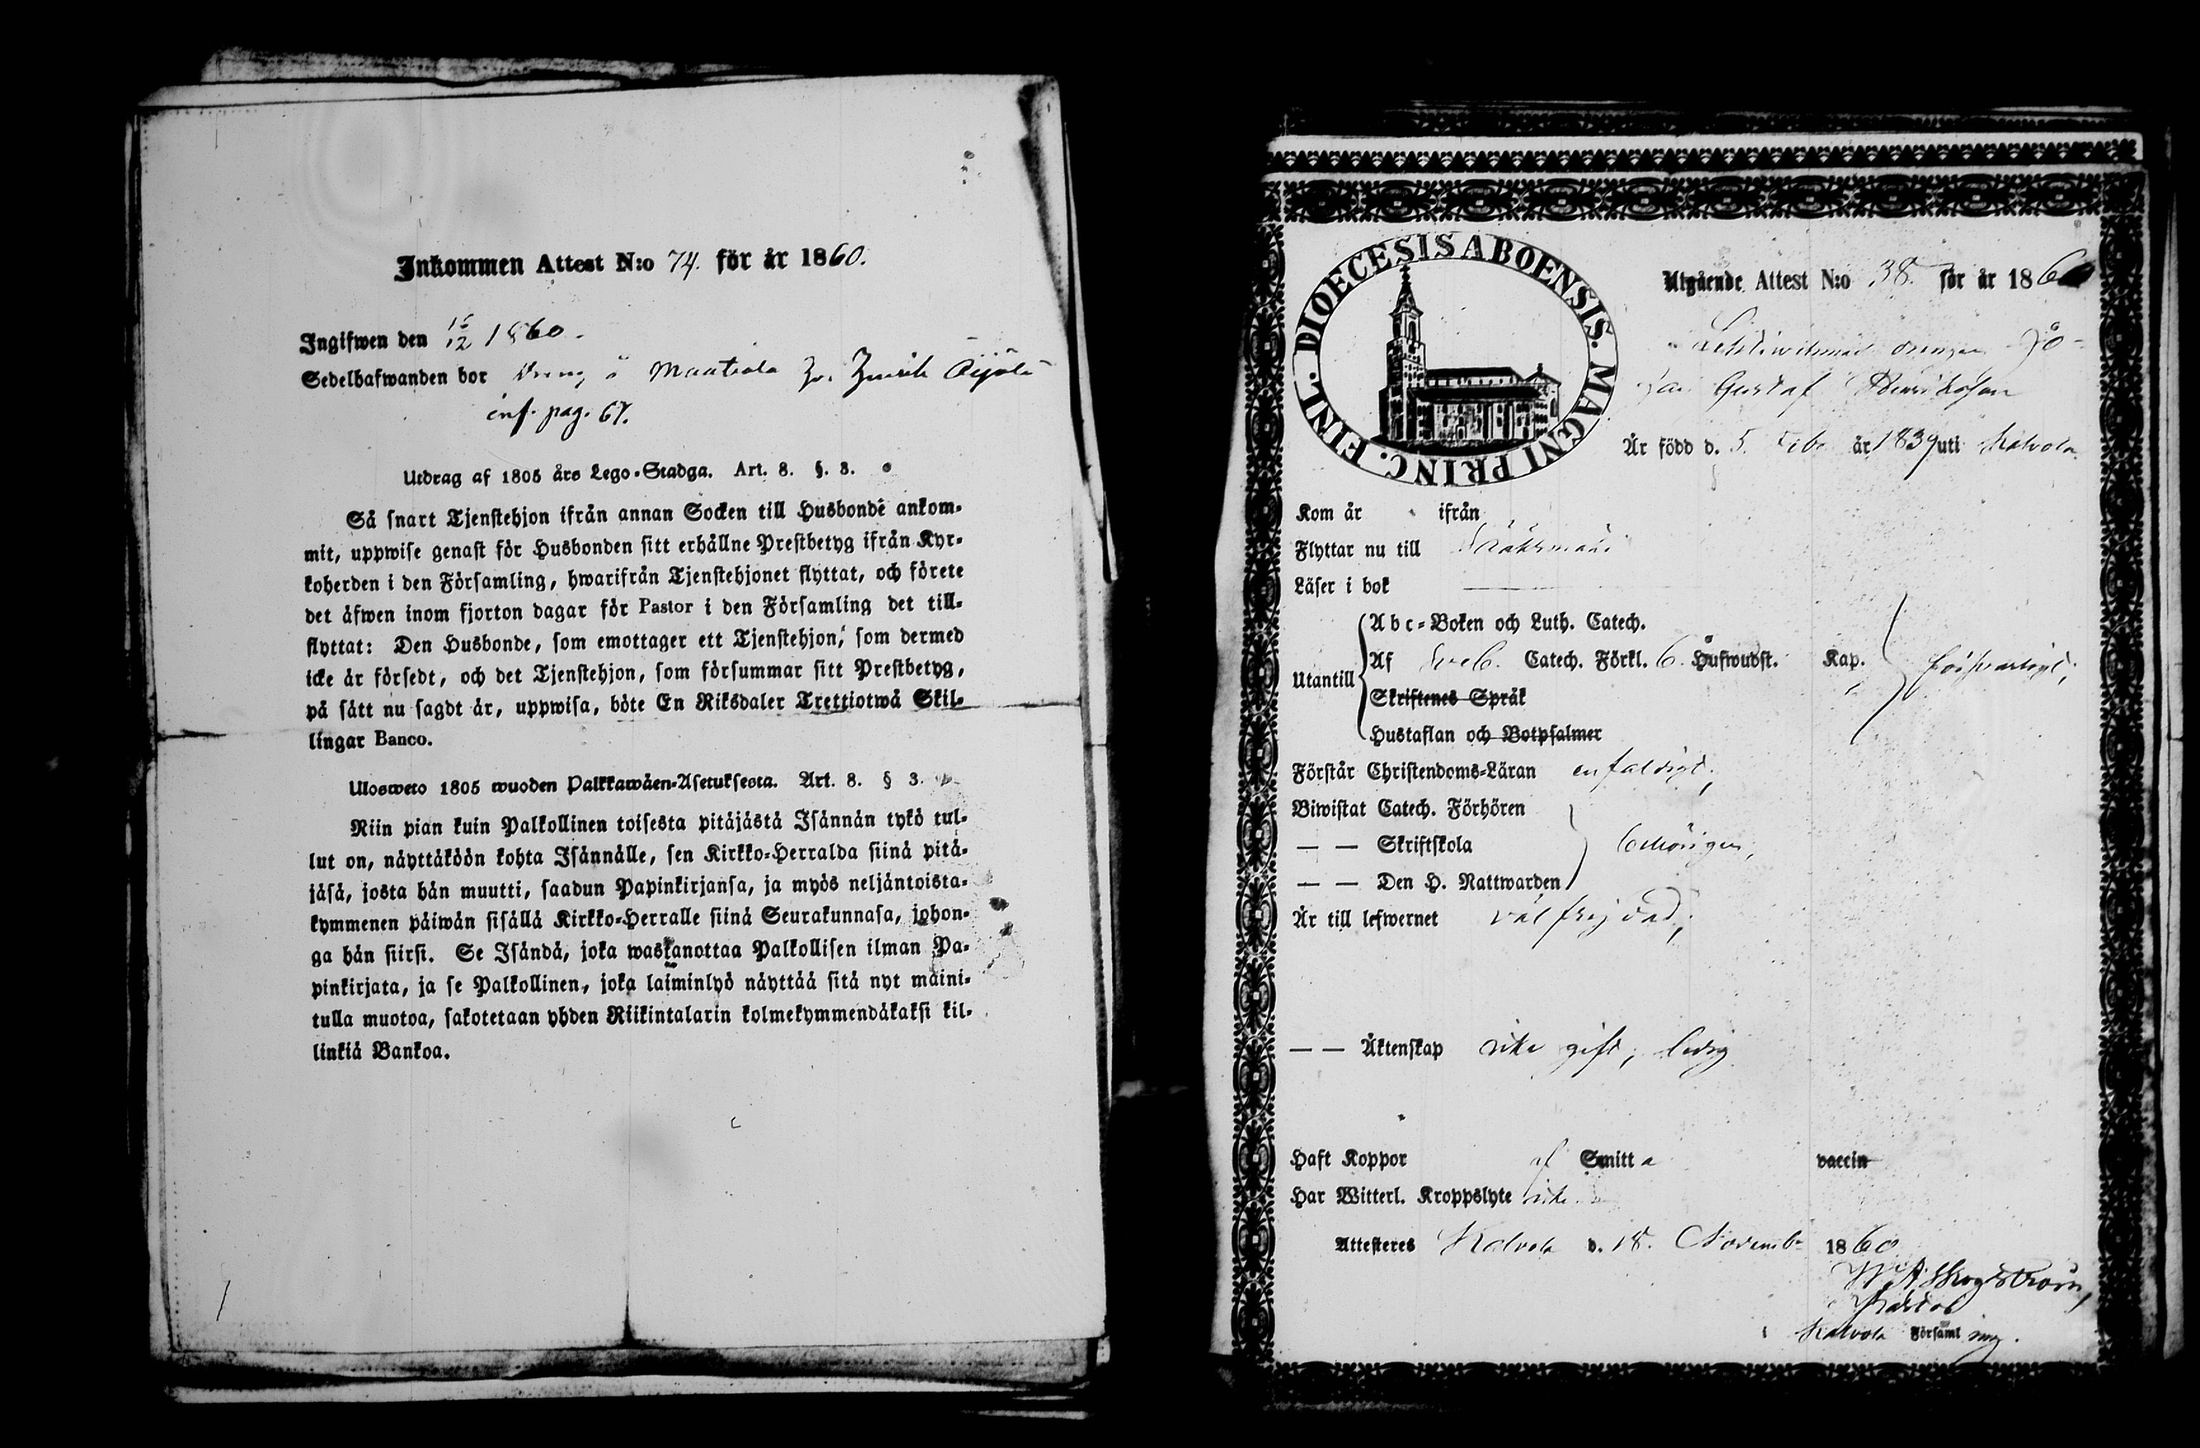 Inkommen Attest N:o 74. för år 1860.
Ingifwen den 16/12 1860.
Sedelhafwanden bor Dreng å Mautiala
inf. pag. 67.
Utdrag af 1805 års Lego-Stadga. Art. 8. §. 3.
Så snart Tjenstehjon ifrån annan Socken till Husbonde ankom-
mit, uppwise genast för Husbonden sitt erhållne Prestbetyg ifrån Kyr-
koherden i den Församling, hwarifrån Tjenstehjonet flyttat, och förete
det äfwen inom fjorton dagar för Pastor i den Församling det till-
flyttat: Den Husbonde, som emottager ett Tjenstehjon, som dermed
icke är försedt, och det Tjenstehjon, som försummar sitt Prestbetyg,
på sätt nu sagdt är, uppwisa, böte En Riksdaler Trettiotwå Skil-
lingar Banco.
Ulosweto 1805 wuoden Palkkawäen-Asetuksesta. Art. 8. § 3.
Niin pian kuin Palkollinen toisesta pitäjästä Isännän tykö tul-
lut on, näyttäköön kohta Isännälle, sen Kirkko-Herralda siinä pitä-
jäsä, josta hän muutti, saadun Papinkirjansa, ja myös neljäntoista-
kymmenen päiwän sisällä Kirkko-Herralle siinä Seurakunnasa, johon-
ga hän siirsi. Se Isändä, joka wastanottaa Palkollisen ilman Pa-
pinkirjata, ja se Palkollinen, joka laiminlyö näyttää sitä nyt maini-
tulla muotoa, sakotetaan yhden Riikintalarin kolmekymmendäkaksi kil-
linkiä Bankoa.
DIOECESIS ABOENSIS. MAGNI PRINC. FINL.
Utgående Attest N:o 38. för år 1860
drengen Jo-
Gustaf Henriksson
Är född d. 5. Feb. år 1839 uti Kalvola
Kom år ifrån
Flyttar nu till Sääksmäki
Läser i bok
Utantill
Abc-Boken och Luth. Catech.
Af Sveb. Catech. Förkl. 6 Hufwudst. Kap. försvarligt;
Skriftenes Språk
Hustaflan och Botpsalmer
Förstår Christendoms-Läran enfaldigt;
Biwistat Catech. Förhören
— — Skriftskola behörigen,
— — Den H. Nattwarden
Är till lefwernet välfrejdad;
— — Äktenskap icke gift, ledig
Haft Koppor af Smitta vaccin
Har Witterl. Kroppslyte icke
Attesteres Kalvola d. 18. Novemb. 1860
W. A. Skogström,
Pastor
i Kalvola Församling.